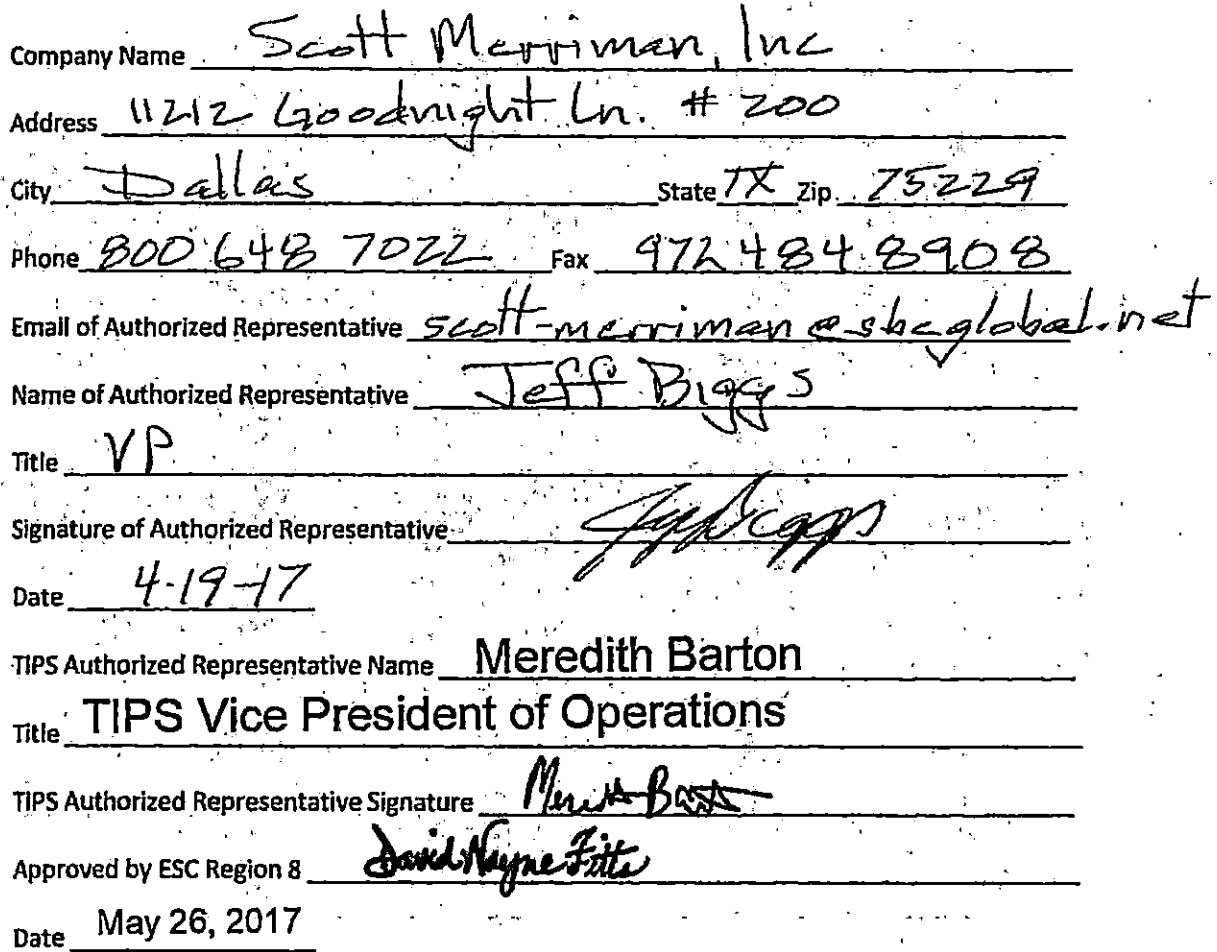 Company Name Scott Merriman, Inc
Address 11212 Goodnight Ln. # 200
City Dallas State TX Zip 75229
Phone 800 648 7022 Fax 972 484 8908
Email of Authorized Representative scott-merriman@sbcglobal.net
Name of Authorized Representative Jeff Biggs
Title VP
Signature of Authorized Representative Jeff Biggs
Date 4-19-17
TIPS Authorized Representative Name Meredith Barton
Title TIPS Vice President of Operations
TIPS Authorized Representative Signature Meredith Barton
Approved by ESC Region 8 David Wayne Fitts
Date May 26, 2017